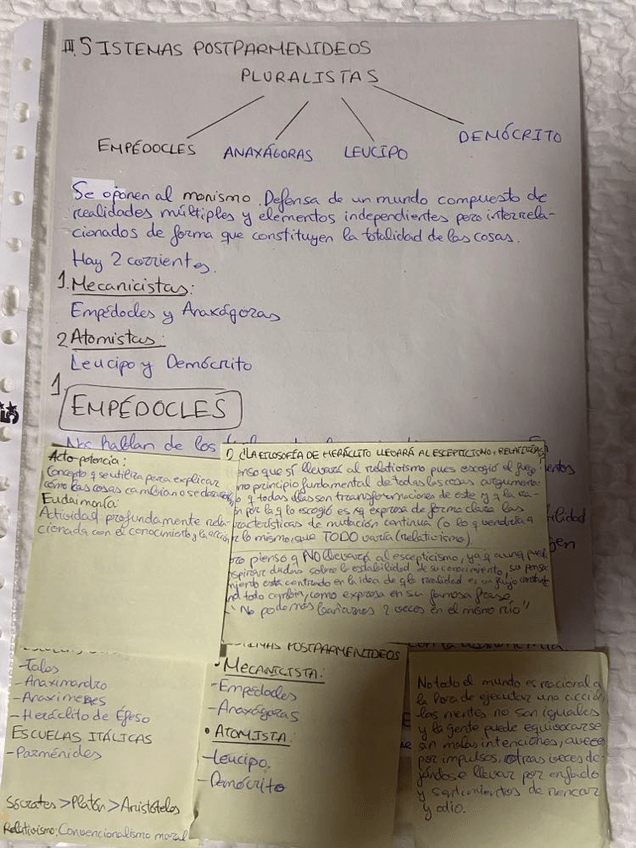 III. SISTEMAS POSTPARMENIDEOS
PLURALISTAS
EMPÉDOCLES ANAXÁGORAS LEUCIPO DEMÓCRITO
Se oponen al monismo. Defensa de un mundo compuesto de
realidades múltiples y elementos independientes pero interrela-
cionados de forma que constituyen la totalidad de las cosas.
Hay 2 corrientes.
1. Mecanicistas:
Empédocles y Anaxágoras
2 Atomistas:
Leucipo y Demócrito
1
EMPÉDOCLES
Nos hablan de los
Acto-potencia:
Concepto q se utiliza para explicar
cómo las cosas cambian o se
Eudaimonía:
Actividad profundamente rela
cionada con el conocimiento y la
¿LA FILOSOFÍA DE HERÁCLITO LLEVARÁ AL ESCEPTICISMO, RELATIVISMO
enso que sí llevará al relativismo pues escogió el fuego
mo principio fundamental de todas las cosas argumenta
q todas ellas son transformaciones de este y q la ra-
ón por la q lo escogió es xq expresa de forma clara las
racterísticas de mutación continua (o lo q vendría a
r lo mismo que TODO varía (relativismo)
ro pienso q NO llevará al escepticismo, ya q aunq
dudas sobre la estabilidad de su conocimiento, su
está centrado en la idea de q la realidad es un flujo
nd todo cambia, como expresa en su famosa frase,
"No podemos bañarnos 2 veces en el mismo río"
entos
ilidad
gen
- Tales
- Anaximandro
- Anaxímenes
- Heráclito de Éfeso
ESCUELAS ITÁLICAS
- Parménides
Sócrates > Platón > Aristóteles
Relativismo: Convencionalismo moral
POSTPARMENIDEOS
• MECANICISTA:
- Empédocles
- Anaxágoras
• ATOMISTA:
- Leucipo
- Demócrito
No todo el mundo es racional a
la hora de ejecutar una acción
las mentes no son iguales
y la gente puede equivocarse
sin malas intenciones, a veces
por impulsos, otras veces de-
jándose llevar por enfado
y sentimientos de rencor
y odio.